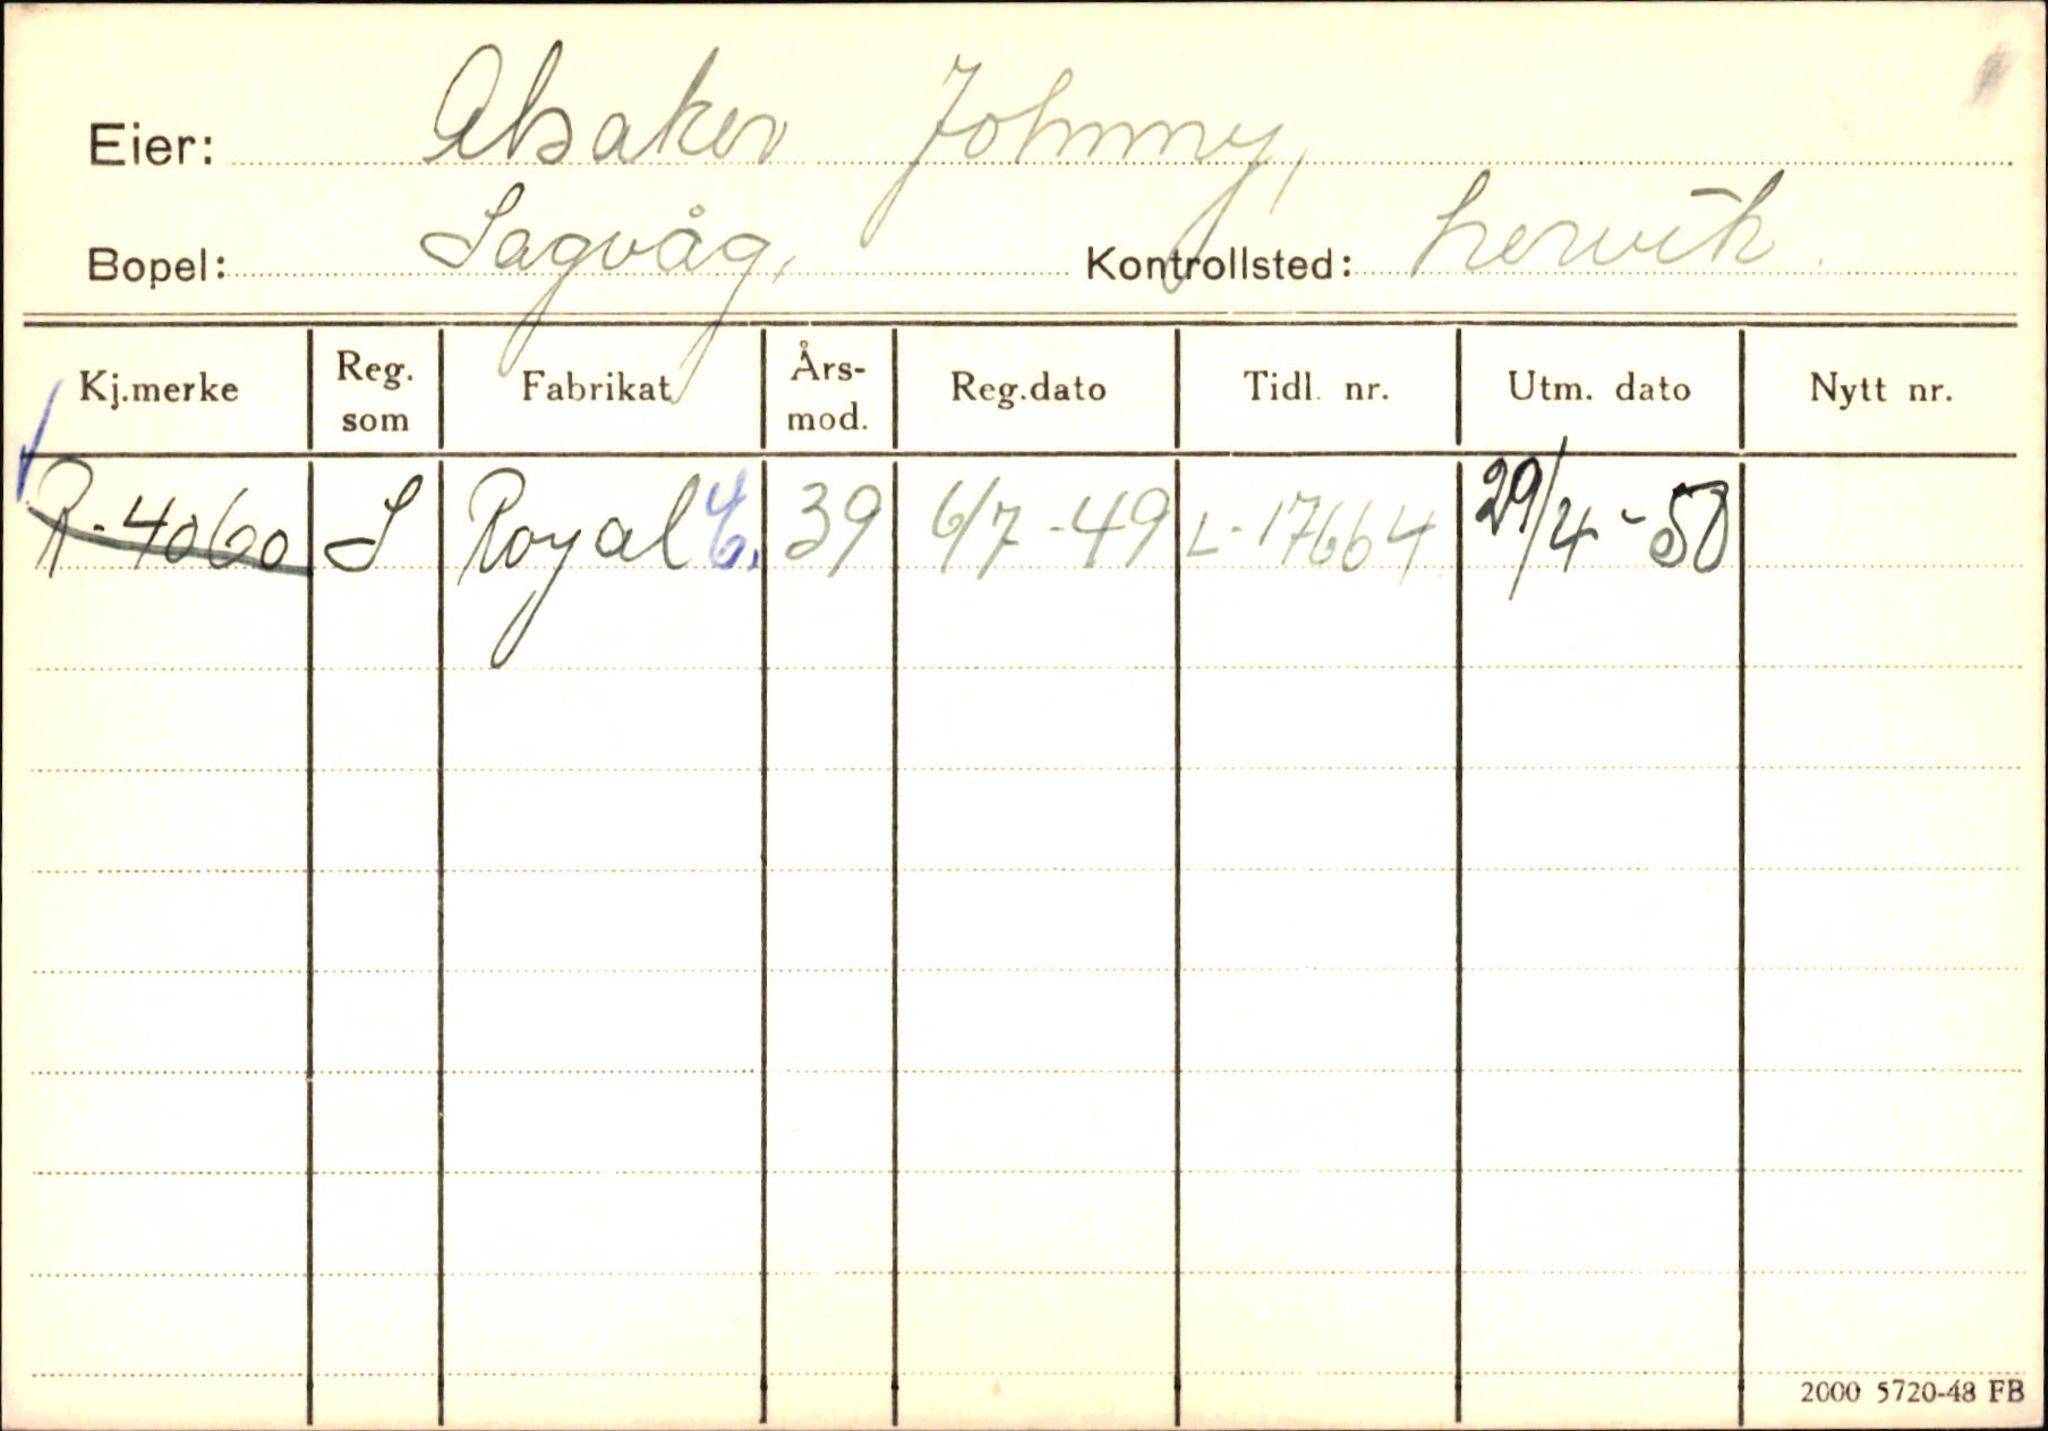 Eier: Alsaker Johnny,
Bopel: Sagvåg, Kontrollsted: Lervik.
Kj.merke Reg. som Fabrikat Års-mod. Reg.dato Tidl. nr. Utm. dato Nytt nr.
R-4060 S Royal 39 6/7-49 L-17664 29/4-50
2000 5720-48 FB